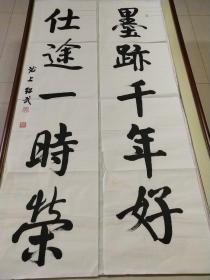 墨跡千年好
仕途一時榮